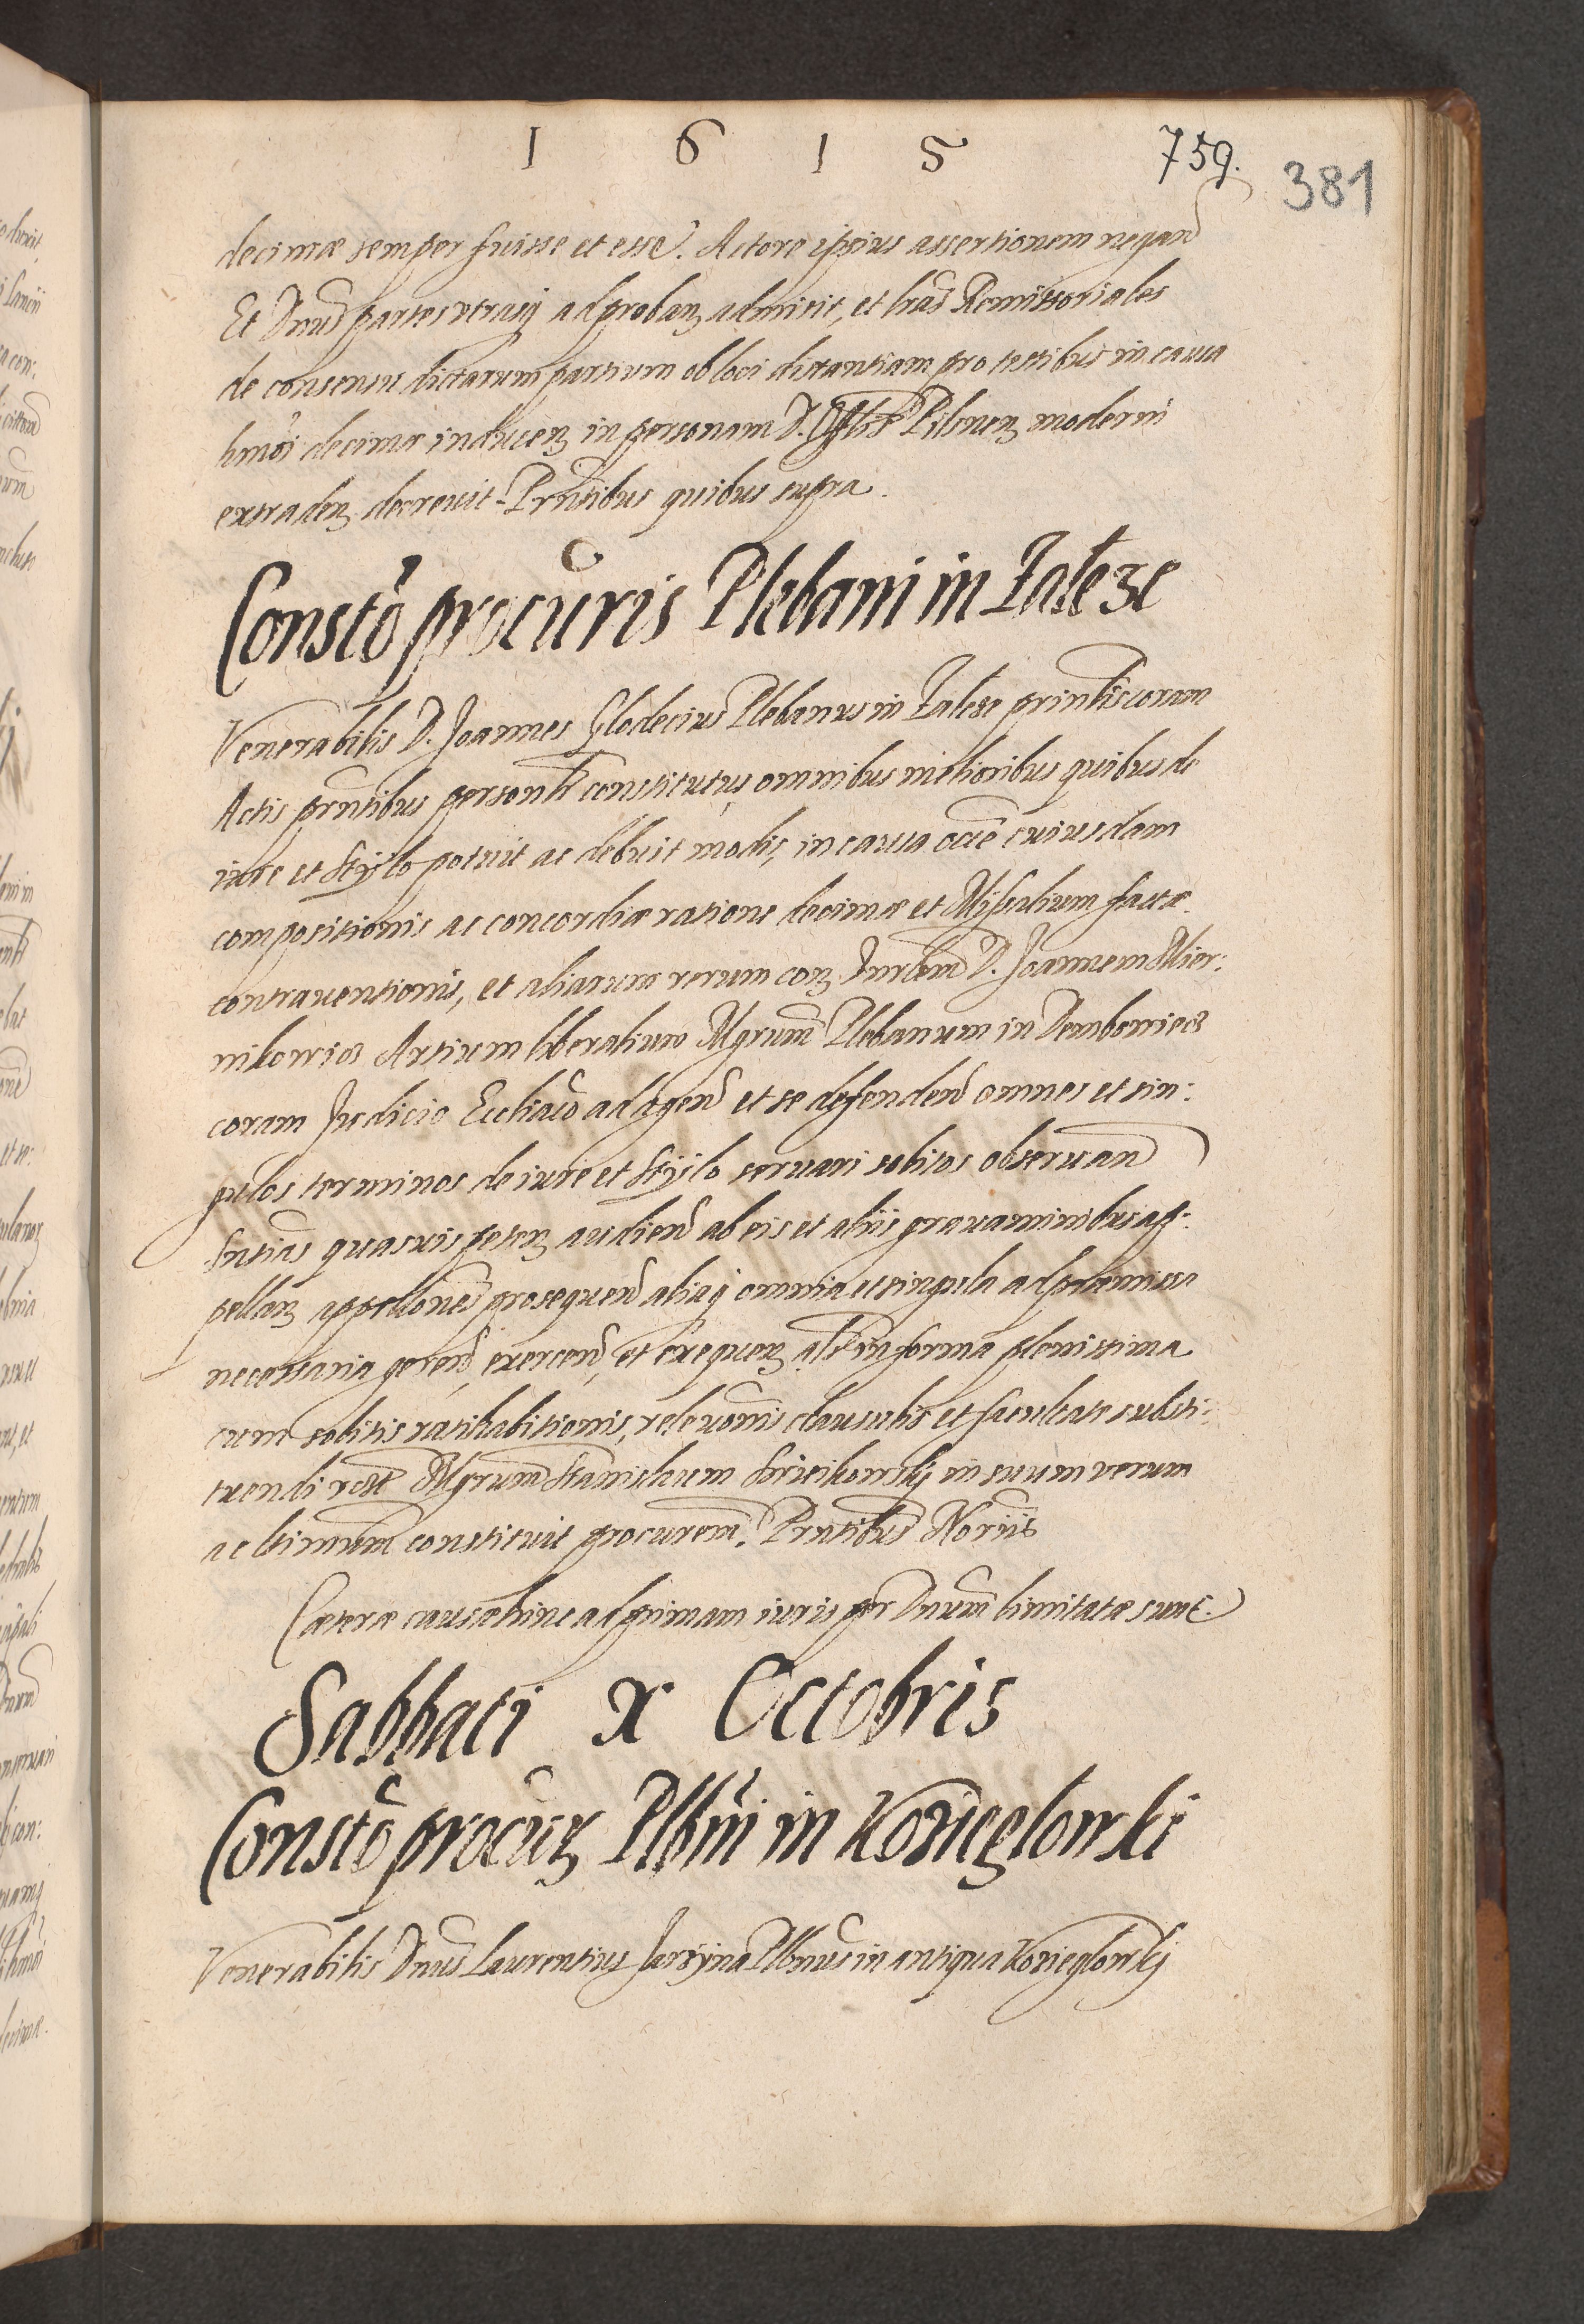 1 6 1 5 759. 381
decimæ semper fuisse et esse. Actore ipsius assertionem negan
Et Dnus partes utrasq ad proban admisit, et lras Remissoriales
de consensu dictarum partium ob loci distantiam pro testibus in causa
hmoi decimæ inducen in personam D. Pilsnen moderni
extraden decrevit. Prntibus quibus supra.
Constō procuris Plebani in Załeze
Venerabilis D. Joannes Glodecius Plebanus in Załeze prinlis coram
Actis prntibus personlr constitutus omnibus melioribus quibus de
iure et Stylo potuit ac debuit modis, in causa occē cuiusdam
compositionis ac concordiæ ratione decimæ et Missalium factæ
contraventionis, et aliarum rerum con D. Joannem Mier:
nikowics Artium liberalium Mgrum Plebanum in Dembowiecz
coram Judicio Eccliastico ad agend et se defendend omnes et sin:
gulos terminos de iure et Stylo servari solitos observan
Sntias quasvis peten audiend ab eis et aliis gravaminibus ap:
pellan appellones prosequend aliaq omnia et singula ad præmissa
necessaria gerend, exercend, et exequen als in forma plenissima
cum solitis ratihabitionis, relevonis clausulis et facultate substi:
tuendi Mgrum Stanislaum in suum verum
ac ltimum constituit procurem. Prntibus Noriis
Cæteræ causæ hinc ad primam iuris per Dnum limitatæ sunt.
Sabbati x Octobris
Constō procur Plbni in Kozieglowki
Venerabilis Dnus Laurentius Plbnus in antiqua Kozieglowki